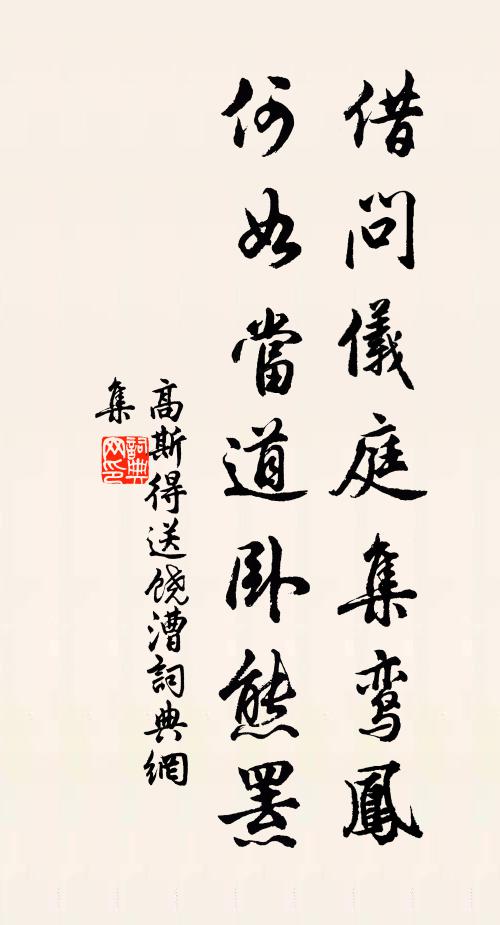 借問儀庭集鸾鳳
何如當道卧熊羆
高斯得送饶漕詞典網
集
詞典
网印